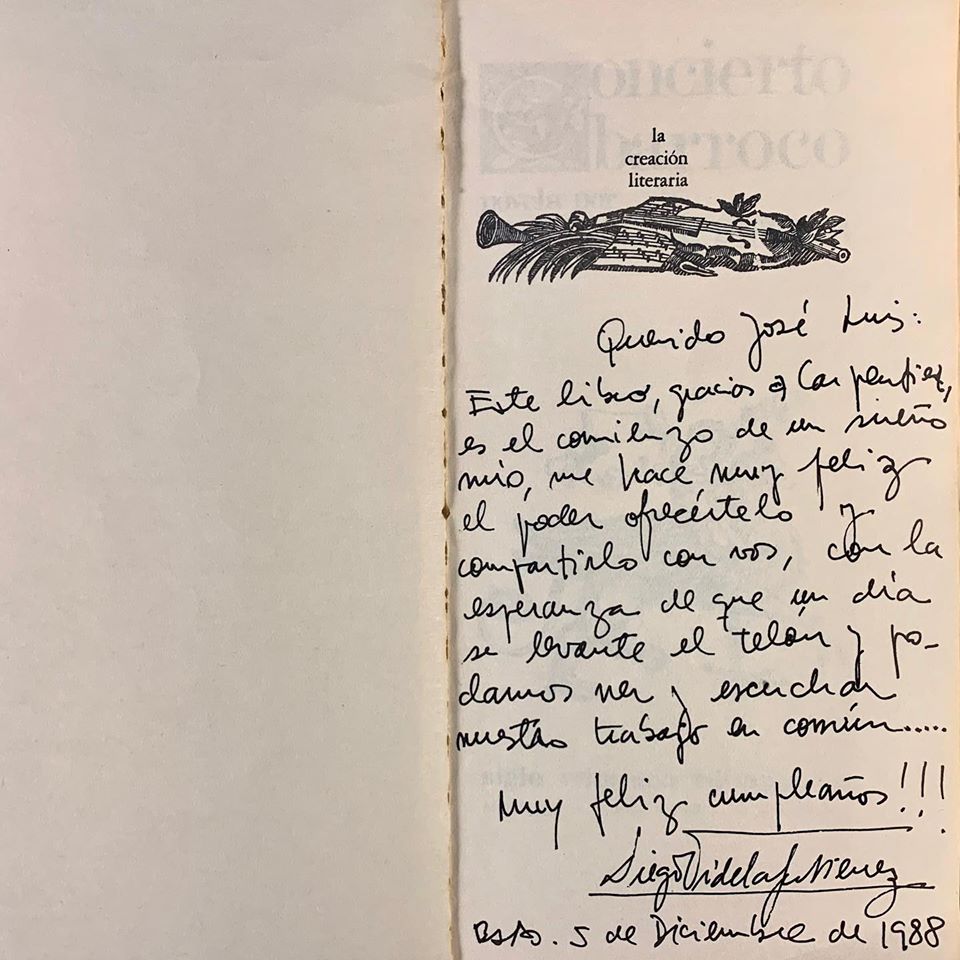 la
creación
literaria
Querido José Luis:
Este libro, gracias a Carpentier,
es el comienzo de un sueño
mío, me hace muy feliz
el poder ofrecértelo y
compartirlo con vos, con la
esperanza de que un día
se levante el telón y po-
damos ver y escuchar
nuestro trabajo en común.....
Muy feliz cumpleaños!!!
Diego Videla Gutierrez
BsAs. 5 de Diciembre de 1988